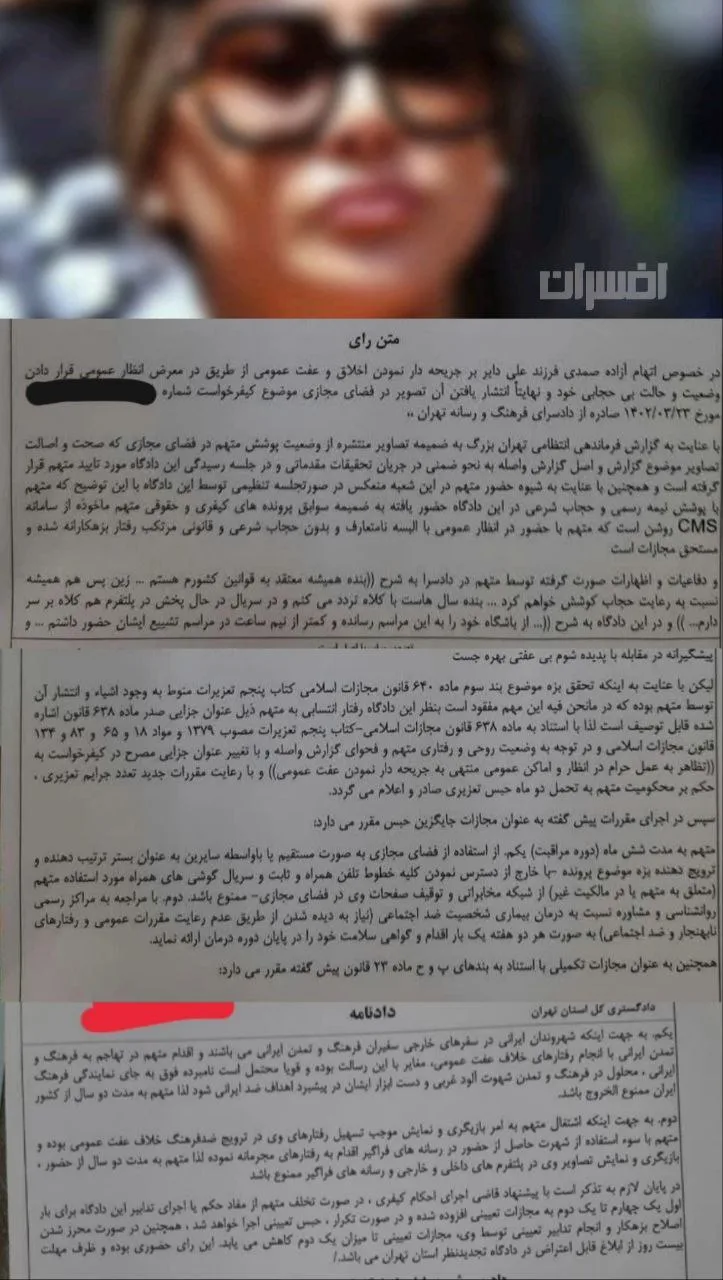 افسران
متن رای
در خصوص اتهام آزاده صمدی فرزند علی دایر بر جریحه دار نمودن اخلاق و عفت عمومی از طریق در معرض انظار عمومی قرار دادن
وضعیت و حالت بی حجابی خود و نهایتاً انتشار یافتن آن تصویر در فضای مجازی موضوع کیفرخواست شماره
مورخ ۱۴۰۲/۰۳/۲۳ صادره از دادسرای فرهنگ و رسانه تهران ،،
با عنایت به گزارش فرماندهی انتظامی تهران بزرگ به ضمیمه تصاویر منتشره از وضعیت پوشش متهم در فضای مجازی که صحت و اصالت
تصاویر موضوع گزارش و اصل گزارش واصله به نحو ضمنی در جریان تحقیقات مقدماتی و در جلسه رسیدگی این دادگاه مورد تایید متهم قرار
گرفته است و همچنین با عنایت به شیوه حضور متهم در این شعبه منعکس در صورتجلسه تنظیمی توسط این دادگاه با این توضیح که متهم
با پوشش نیمه رسمی و حجاب شرعی در این دادگاه حضور یافته به ضمیمه سوابق پرونده های کیفری و حقوقی متهم ماخوذه از سامانه
CMS روشن است که متهم با حضور در انظار عمومی با البسه نامتعارف و بدون حجاب شرعی و قانونی مرتکب رفتار بزهکارانه شده و
مستحق مجازات است
و دفاعیات و اظهارات صورت گرفته توسط متهم در دادسرا به شرح ((بنده همیشه معتقد به قوانین کشورم هستم ... زین پس هم همیشه
نسبت به رعایت حجاب کوشش خواهم کرد ... بنده سال هاست با کلاه تردد می کنم و در سریال در حال پخش در پلتفرم هم کلاه بر سر
دارم... )) و در این دادگاه به شرح ((... از باشگاه خود را به این مراسم رسانده و کمتر از نیم ساعت در مراسم تشییع ایشان حضور داشتم ... و
پیشگیرانه در مقابله با پدیده شوم بی عفتی بهره جست
لیکن با عنایت به اینکه تحقق بزه موضوع بند سوم ماده ۶۴۰ قانون مجازات اسلامی کتاب پنجم تعزیرات منوط به وجود اشیاء و انتشار آن
توسط متهم بوده که در مانحن فیه این مهم مفقود است بنظر این دادگاه رفتار انتسابی به متهم ذیل عنوان جزایی صدر ماده ۶۳۸ قانون اشاره
شده قابل توصیف است لذا با استناد به ماده ۶۳۸ قانون مجازات اسلامی-کتاب پنجم تعزیرات مصوب ۱۳۷۹ و مواد ۱۸ و ۶۵ و ۸۳ و ۱۳۴
قانون مجازات اسلامی و در توجه به وضعیت روحی و رفتاری متهم و فحوای گزارش واصله و با تغییر عنوان جزایی مصرح در کیفرخواست به
((تظاهر به عمل حرام در انظار و اماکن عمومی منتهی به جریحه دار نمودن عفت عمومی)) و با رعایت مقررات جدید تعدد جرایم تعزیری ،
حکم بر محکومیت متهم به تحمل دو ماه حبس تعزیری صادر و اعلام می گردد.
سپس در اجرای مقررات پیش گفته به عنوان مجازات جایگزین حبس مقرر می دارد:
متهم به مدت شش ماه (دوره مراقبت) یکم. از استفاده از فضای مجازی به صورت مستقیم یا باواسطه سایرین به عنوان بستر ترتیب دهنده و
ترویج دهنده بزه موضوع پرونده -با خارج از دسترس نمودن کلیه خطوط تلفن همراه و ثابت و سریال گوشی های همراه مورد استفاده متهم
(متعلق به متهم یا در مالکیت غیر) از شبکه مخابراتی و توقیف صفحات وی در فضای مجازی- ممنوع باشد. دوم. با مراجعه به مراکز رسمی
روانشناسی و مشاوره نسبت به درمان بیماری شخصیت ضد اجتماعی (نیاز به دیده شدن از طریق عدم رعایت مقررات عمومی و رفتارهای
نابهنجار و ضد اجتماعی) به صورت هر دو هفته یک بار اقدام و گواهی سلامت خود را در پایان دوره درمان ارائه نماید.
همچنین به عنوان مجازات تکمیلی با استناد به بندهای پ و ح ماده ۲۳ قانون پیش گفته مقرر می دارد:
دادگستری کل استان تهران
دادنامه
یکم. به جهت اینکه شهروندان ایرانی در سفرهای خارجی سفیران فرهنگ و تمدن ایرانی می باشند و اقدام متهم در تهاجم به فرهنگ و
تمدن ایرانی با انجام رفتارهای خلاف عفت عمومی، مغایر با این رسالت بوده و قویا محتمل است نامبرده فوق به جای نمایندگی فرهنگ
ایرانی ، محلول در فرهنگ و تمدن شهوت آلود غربی و دست ابزار ایشان در پیشبرد اهداف ضد ایرانی شود لذا متهم به مدت دو سال از کشور
ایران ممنوع الخروج باشد.
دوم. به جهت اینکه اشتغال متهم به امر بازیگری و نمایش موجب تسهیل رفتارهای وی در ترویج ضدفرهنگ خلاف عفت عمومی بوده و
متهم با سوء استفاده از شهرت حاصل از حضور در رسانه های فراگیر اقدام به رفتارهای مجرمانه نموده لذا متهم به مدت دو سال از حضور ،
بازیگری و نمایش تصاویر وی در پلتفرم های داخلی و خارجی و رسانه های فراگیر ممنوع باشد
در پایان لازم به تذکر است با پیشنهاد قاضی اجرای احکام کیفری ، در صورت تخلف متهم از مفاد حکم یا اجرای تدابیر این دادگاه برای بار
اول یک چهارم تا یک دوم به مجازات تعیینی افزوده شده و در صورت تکرار ، حبس تعیینی اجرا خواهد شد ، همچنین در صورت محرز شدن
اصلاح بزهکار و انجام تدابیر تعیینی توسط وی، مجازات تعیینی تا میزان یک دوم کاهش می یابد. این رای حضوری بوده و ظرف مهلت
بیست روز از ابلاغ قابل اعتراض در دادگاه تجدیدنظر استان تهران می باشد./